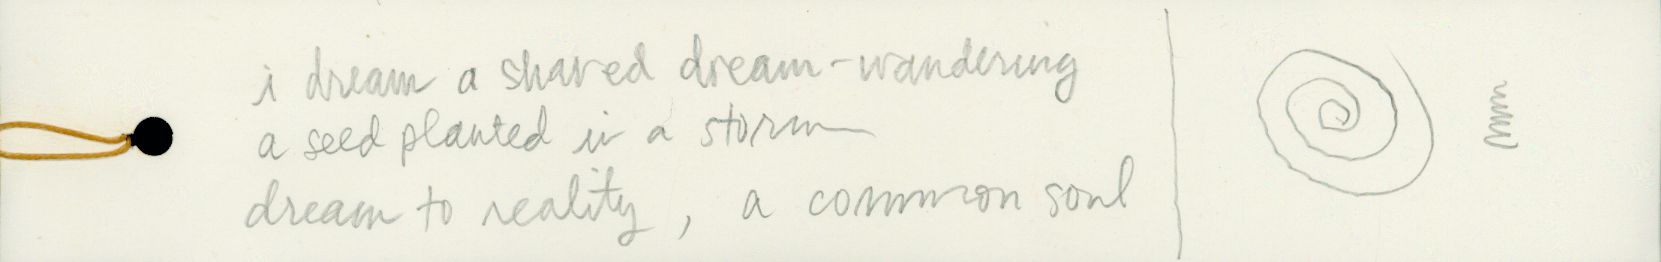 i dream a shared dream-wandering
a seed planted in a storm
dream to reality, a common soul